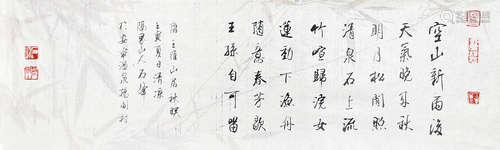 空山新雨後
天氣晚来秋
明月松間照
清泉石上流
竹喧歸浣女
蓮動下漁舟
隨意春芳歇
王孫自可留
唐王維山居秋暝
壬寅夏日清涼
山人石
於安